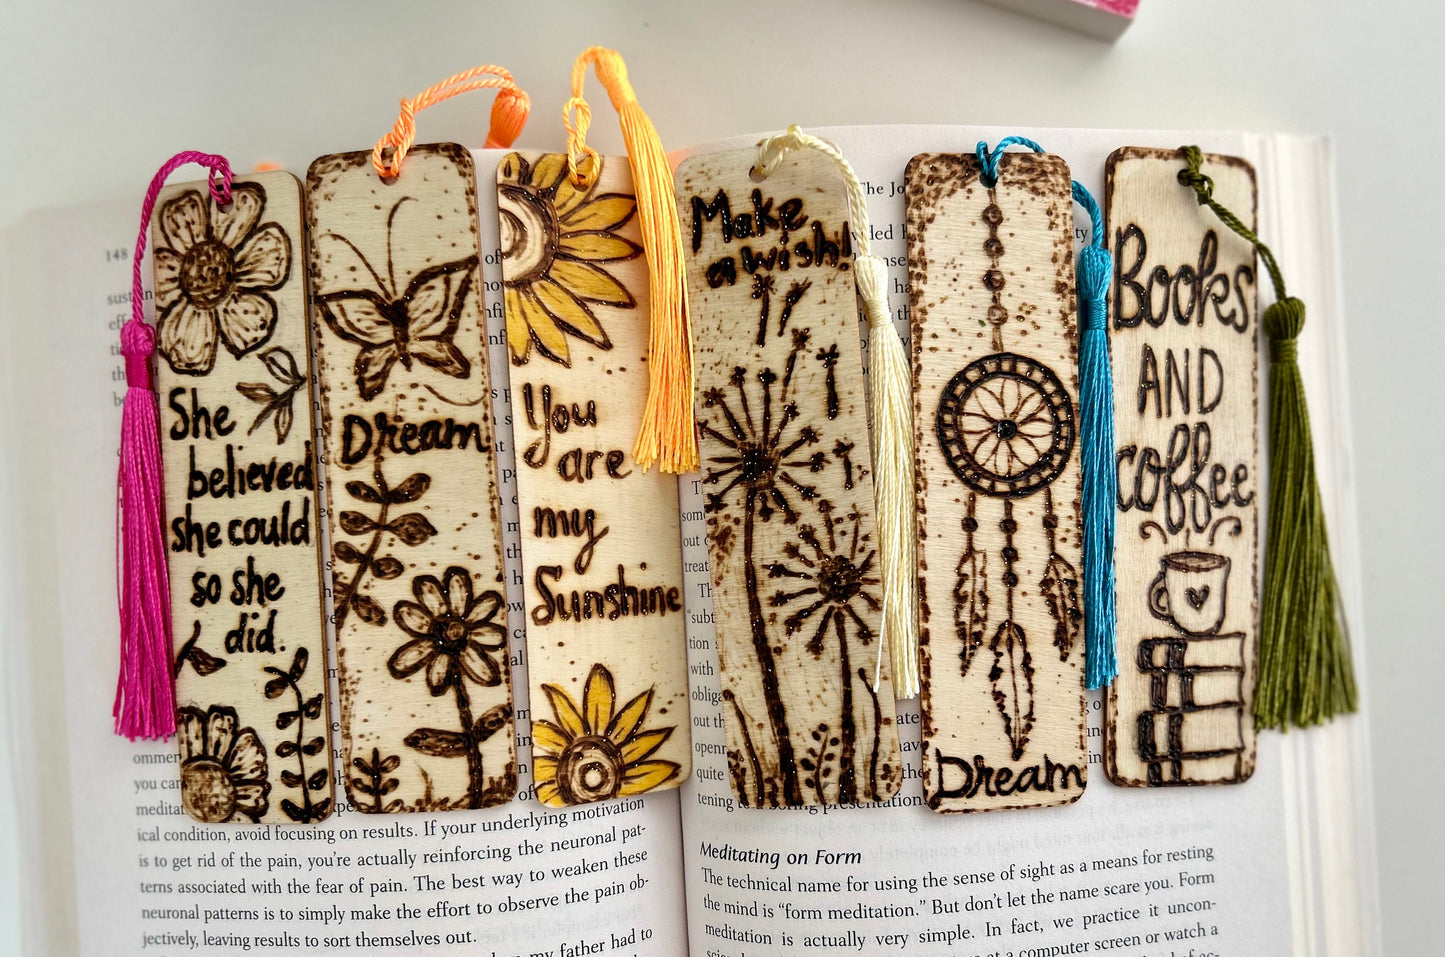 She
believed
she could
so she
did.
Dream
You
are
my
Sunshine
Make
a wish!
Dream
Books
AND
coffee
148
The Jo
ical condition, avoid focusing on results. If your underlying motivation
is to get rid of the pain, you're actually reinforcing the neuronal pat-
terns associated with the fear of pain. The best way to weaken these
neuronal patterns is to simply make the effort to observe the pain ob-
jectively, leaving results to sort themselves out.
my father had to
Meditating on Form
The technical name for using the sense of sight as a means for resting
the mind is “form meditation.” But don't let the name scare you. Form
meditation is actually very simple. In fact, we practice it uncon-
at a computer screen or watch a